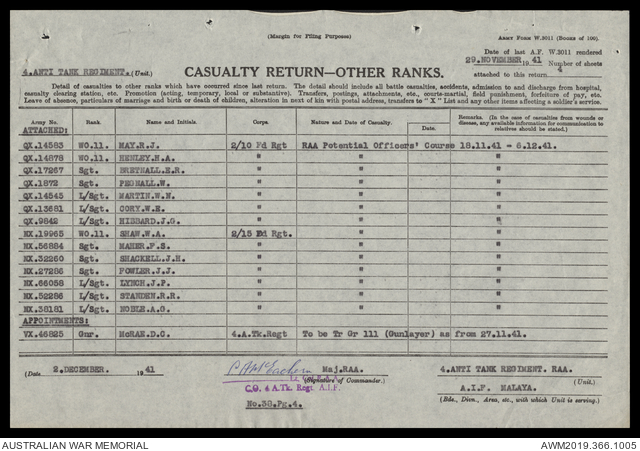 (Margin for Filing Purposes)
ARMY FORM W.3011 (BOOKS OF 100).
Date of last A.F. W.3011 rendered
29.NOVEMBER. 1941 Number of sheets
attached to this return 4
4.ANTI TANK REGIMENT. (Unit.)
CASUALTY RETURN—OTHER RANKS.
Detail of casualties to other ranks which have occurred since last return. The detail should include all battle casualties, accidents, admission to and discharge from hospital,
casualty clearing station, etc. Promotion (acting, temporary, local or substantive). Transfers, postings, attachments, etc., courts-martial, field punishment, forfeiture of pay, etc.
Leave of absence, particulars of marriage and birth or death of children, alteration in next of kin with postal address, transfers to "X" List and any other items affecting a soldier's service.
Army No. Rank. Name and Initials. Corps. Nature and Date of Casualty. Date. Remarks. (In the case of casualties from wounds or disease, any available information for communication to relatives should be stated.)
ATTACHED:
QX.14583 WO.11. MAY.R.J. 2/10 Fd Rgt RAA Potential Officers' Course 18.11.41 - 6.12.41.
QX.14878 WO.11. HENLEY.H.A. " " "
QX.17267 Sgt. BRETHALL.E.R. " " "
QX.1872 Sgt. PEGHALL.W. " " "
QX.14545 L/Sgt. MARTIN.W.N. " " "
QX.13681 L/Sgt. CORY.W.E. " " "
QX.9842 L/Sgt. HIBBARD.J.G. " " "
NX.19965 WO.11. SHAW.W.A. 2/15 Fd Rgt. " "
NX.56884 Sgt. MAHER.F.S. " " "
NX.32260 Sgt. SHACKELL.J.H. " " "
NX.27256 Sgt. FOWLER.J.J. " " "
NX.66058 L/Sgt. LYNCH.J.P. " " "
NX.52286 L/Sgt. STANDEN.R.R. " " "
NX.38181 L/Sgt. NOBLE.A.G. " " "
APPOINTMENTS:
VX.46825 Gnr. McRAE.D.C. 4.A.Tk.Regt To be Tr Gr 111 (Gunlayer) as from 27.11.41.
(Date 2.DECEMBER. 1941 Maj.RAA. 4.ANTI TANK REGIMENT. RAA.
(Signature of Commander.) (Unit.)
C.O. 4 A.Tk. Regt. A.I.F. A.I.F. MALAYA.
(Bde., Divn., Area, etc., with which Unit is serving.)
No.39.Pg.4.
AUSTRALIAN WAR MEMORIAL AWM2019.366.1005